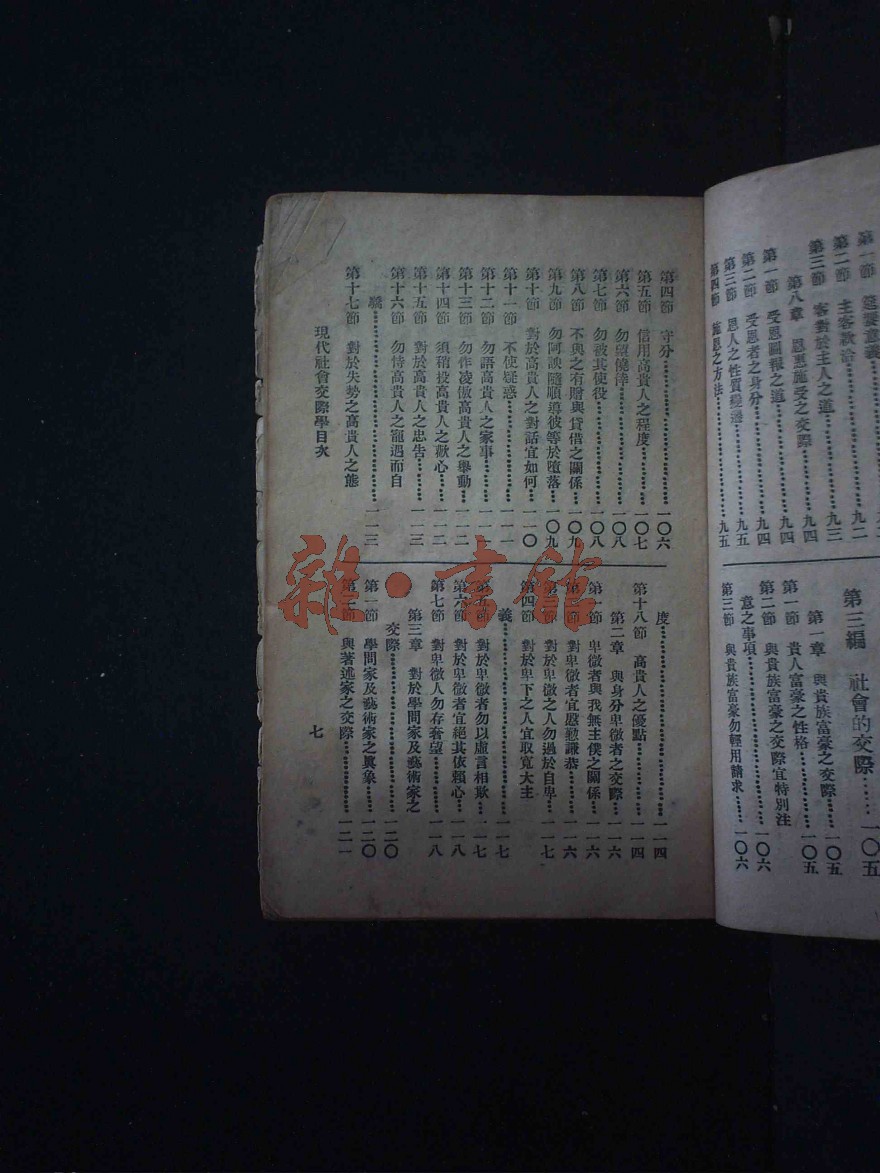 第二節　主客款洽……九二
第三節　客對於主人之道……九三
第八章　恩惠施受之交際……九四
第一節　受恩圖報之道……九四
第二節　受恩者之身分……九四
第三節　恩人之性質變遷……九五
第四節　施恩之方法……九五
第三編　社會的交際……一〇五
第一章　與貴族富豪之交際……一〇五
第一節　貴人富豪之性格……一〇五
第二節　與貴族富豪之交際宜特別注
意之事項……一〇六
第三節　與貴族富豪勿輕用請求……一〇六
第四節　守分……一〇六
第五節　信用高貴人之程度……一〇七
第六節　勿圖僥倖……一〇八
第七節　勿被其使役……一〇八
第八節　不與之有贈與貸借之關係……一〇九
第九節　勿阿諛隨順導彼等於墮落……一〇九
第十節　對於高貴人之對話宜如何……一一〇
第十一節　不使疑惑……一一一
第十二節　勿語高貴人之家事……一一二
第十三節　勿作凌傲高貴人之舉動……一一二
第十四節　須稍投高貴人之歡心……一一二
第十五節　對於高貴人之忠告……一一三
第十六節　勿恃高貴人之寵遇而自
驕……一一三
第十七節　對於失勢之高貴人之態
度……一一四
第十八節　高貴人之優點……一一四
第二章　與身分卑微者之交際……一一六
第一節　卑微者與我無主僕之關係……一一六
第二節　對卑微者宜慇懃謙恭……一一六
第三節　對卑微之人勿過於自卑……一一七
第四節　對於卑下之人宜取寬大主
義……一一七
第五節　對於卑微者勿以虛言相欺……一一七
第六節　對於卑微者宜絕其依賴心……一一八
第七節　對卑微人勿存奢望……一一八
第三章　對於學問家及藝術家之
交際……一二〇
第一節　學問家及藝術家之眞象……一二〇
第二節　與著述家之交際……一二一
現代社會交際學目次
七
雜·書館